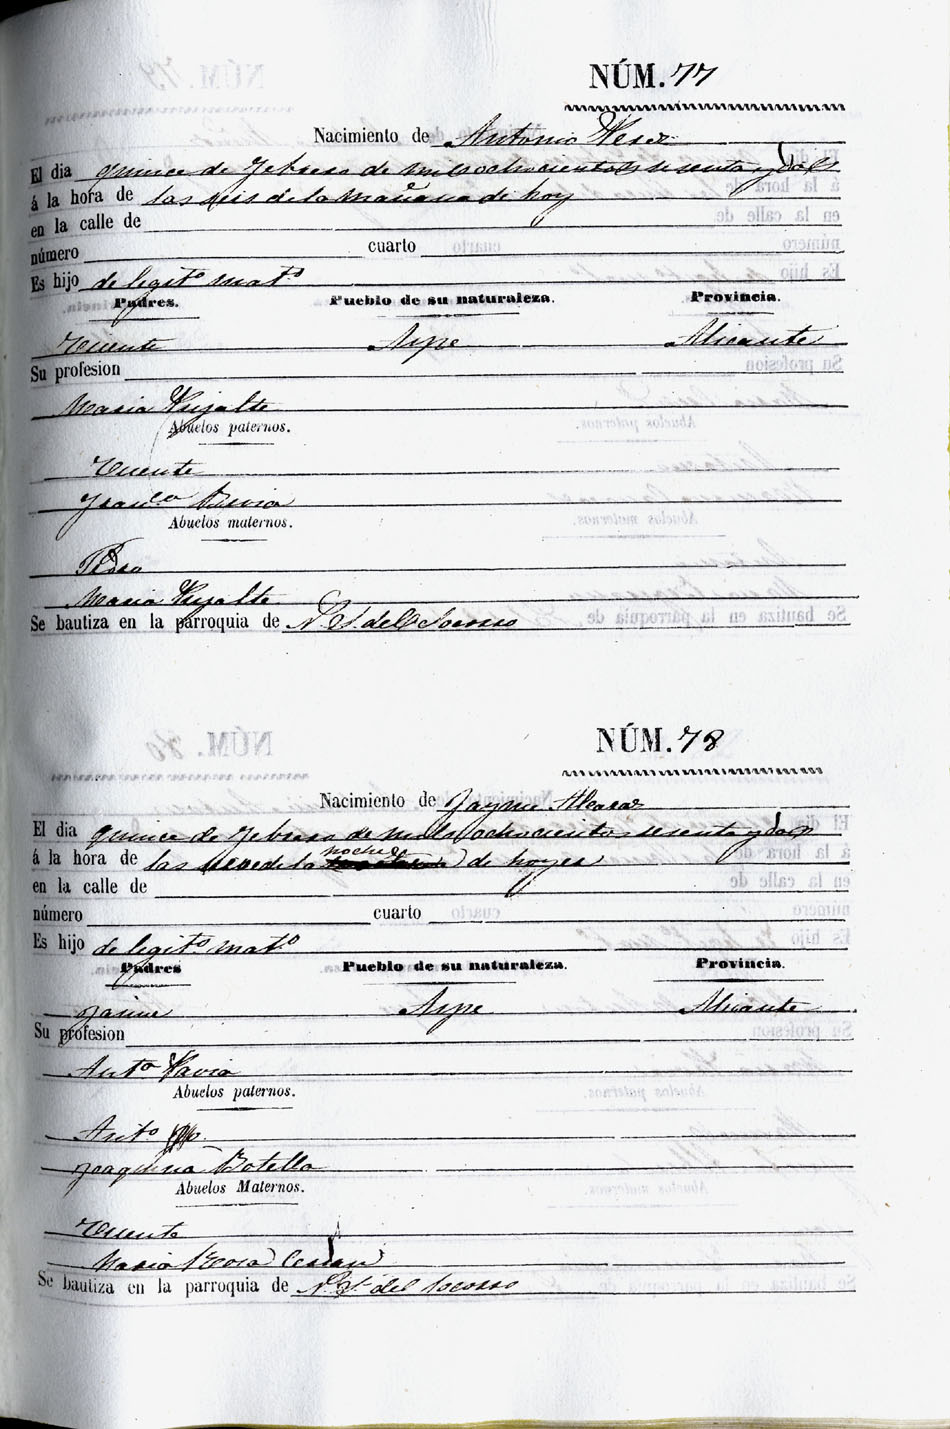 NÚM. 77
Nacimiento de Antonio Perez
El dia quince de Febrero de mil ochocientos sesenta y dos
á la hora de las seis de la mañana de hoy
en la calle de
número cuarto
Es hijo de legit.º mat.º
Padres. Pueblo de su naturaleza. Provincia.
Vicente Aspe Alicante
Su profesion
Maria Mugalte
Abuelos paternos.
Vicente
Fran.ca
Abuelos maternos.
Pedro
Maria
Se bautiza en la parroquia de N. S. del Socorro
NÚM. 78
Nacimiento de Jayme Alcaraz
El dia quince de Febrero de mil ochocientos sesenta y dos
á la hora de las nueve de la noche de
en la calle de
número cuarto
Es hijo de legit.º mat.º
Padres Pueblo de su naturaleza. Provincia.
Jaime Aspe Alicante
Su profesion
Ant.ª Pavia
Abuelos paternos.
Ant.º
Joaquina Botella
Abuelos Maternos.
Vicente
Maria Rosa
Se bautiza en la parroquia de N. S. del Socorro